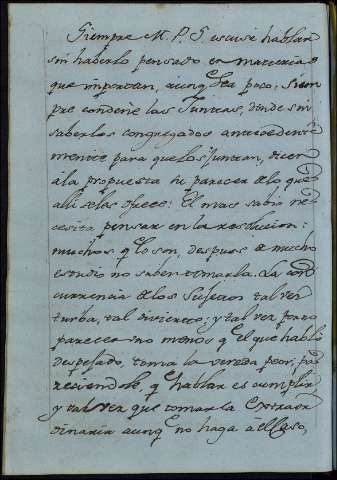 Siempre M. P. S. escusè hablar
sin haberlo pensado en materias
que importen, aunq sea poco: Siem
pre condenè las Juntas, donde sin
saber los congregados antecedente
mente para que los juntan, dicen
a la propuesta su parecer de lo que
alli se les ofrece: El mas sabio ne
cesita pensar en la resolucion:
muchos q lo son, despues de mucho
estudio no saben tomarla. La con
currencia de los Sugetos tal vez
turba, tal divierte: y tal vez por no
parecer uno menos q el que hablò
despejado, toma la vereda peor, pa
reciendole q hablar es cumplir
y tal vez que tomar la extraor
dinaria aunq no haga al Caso,